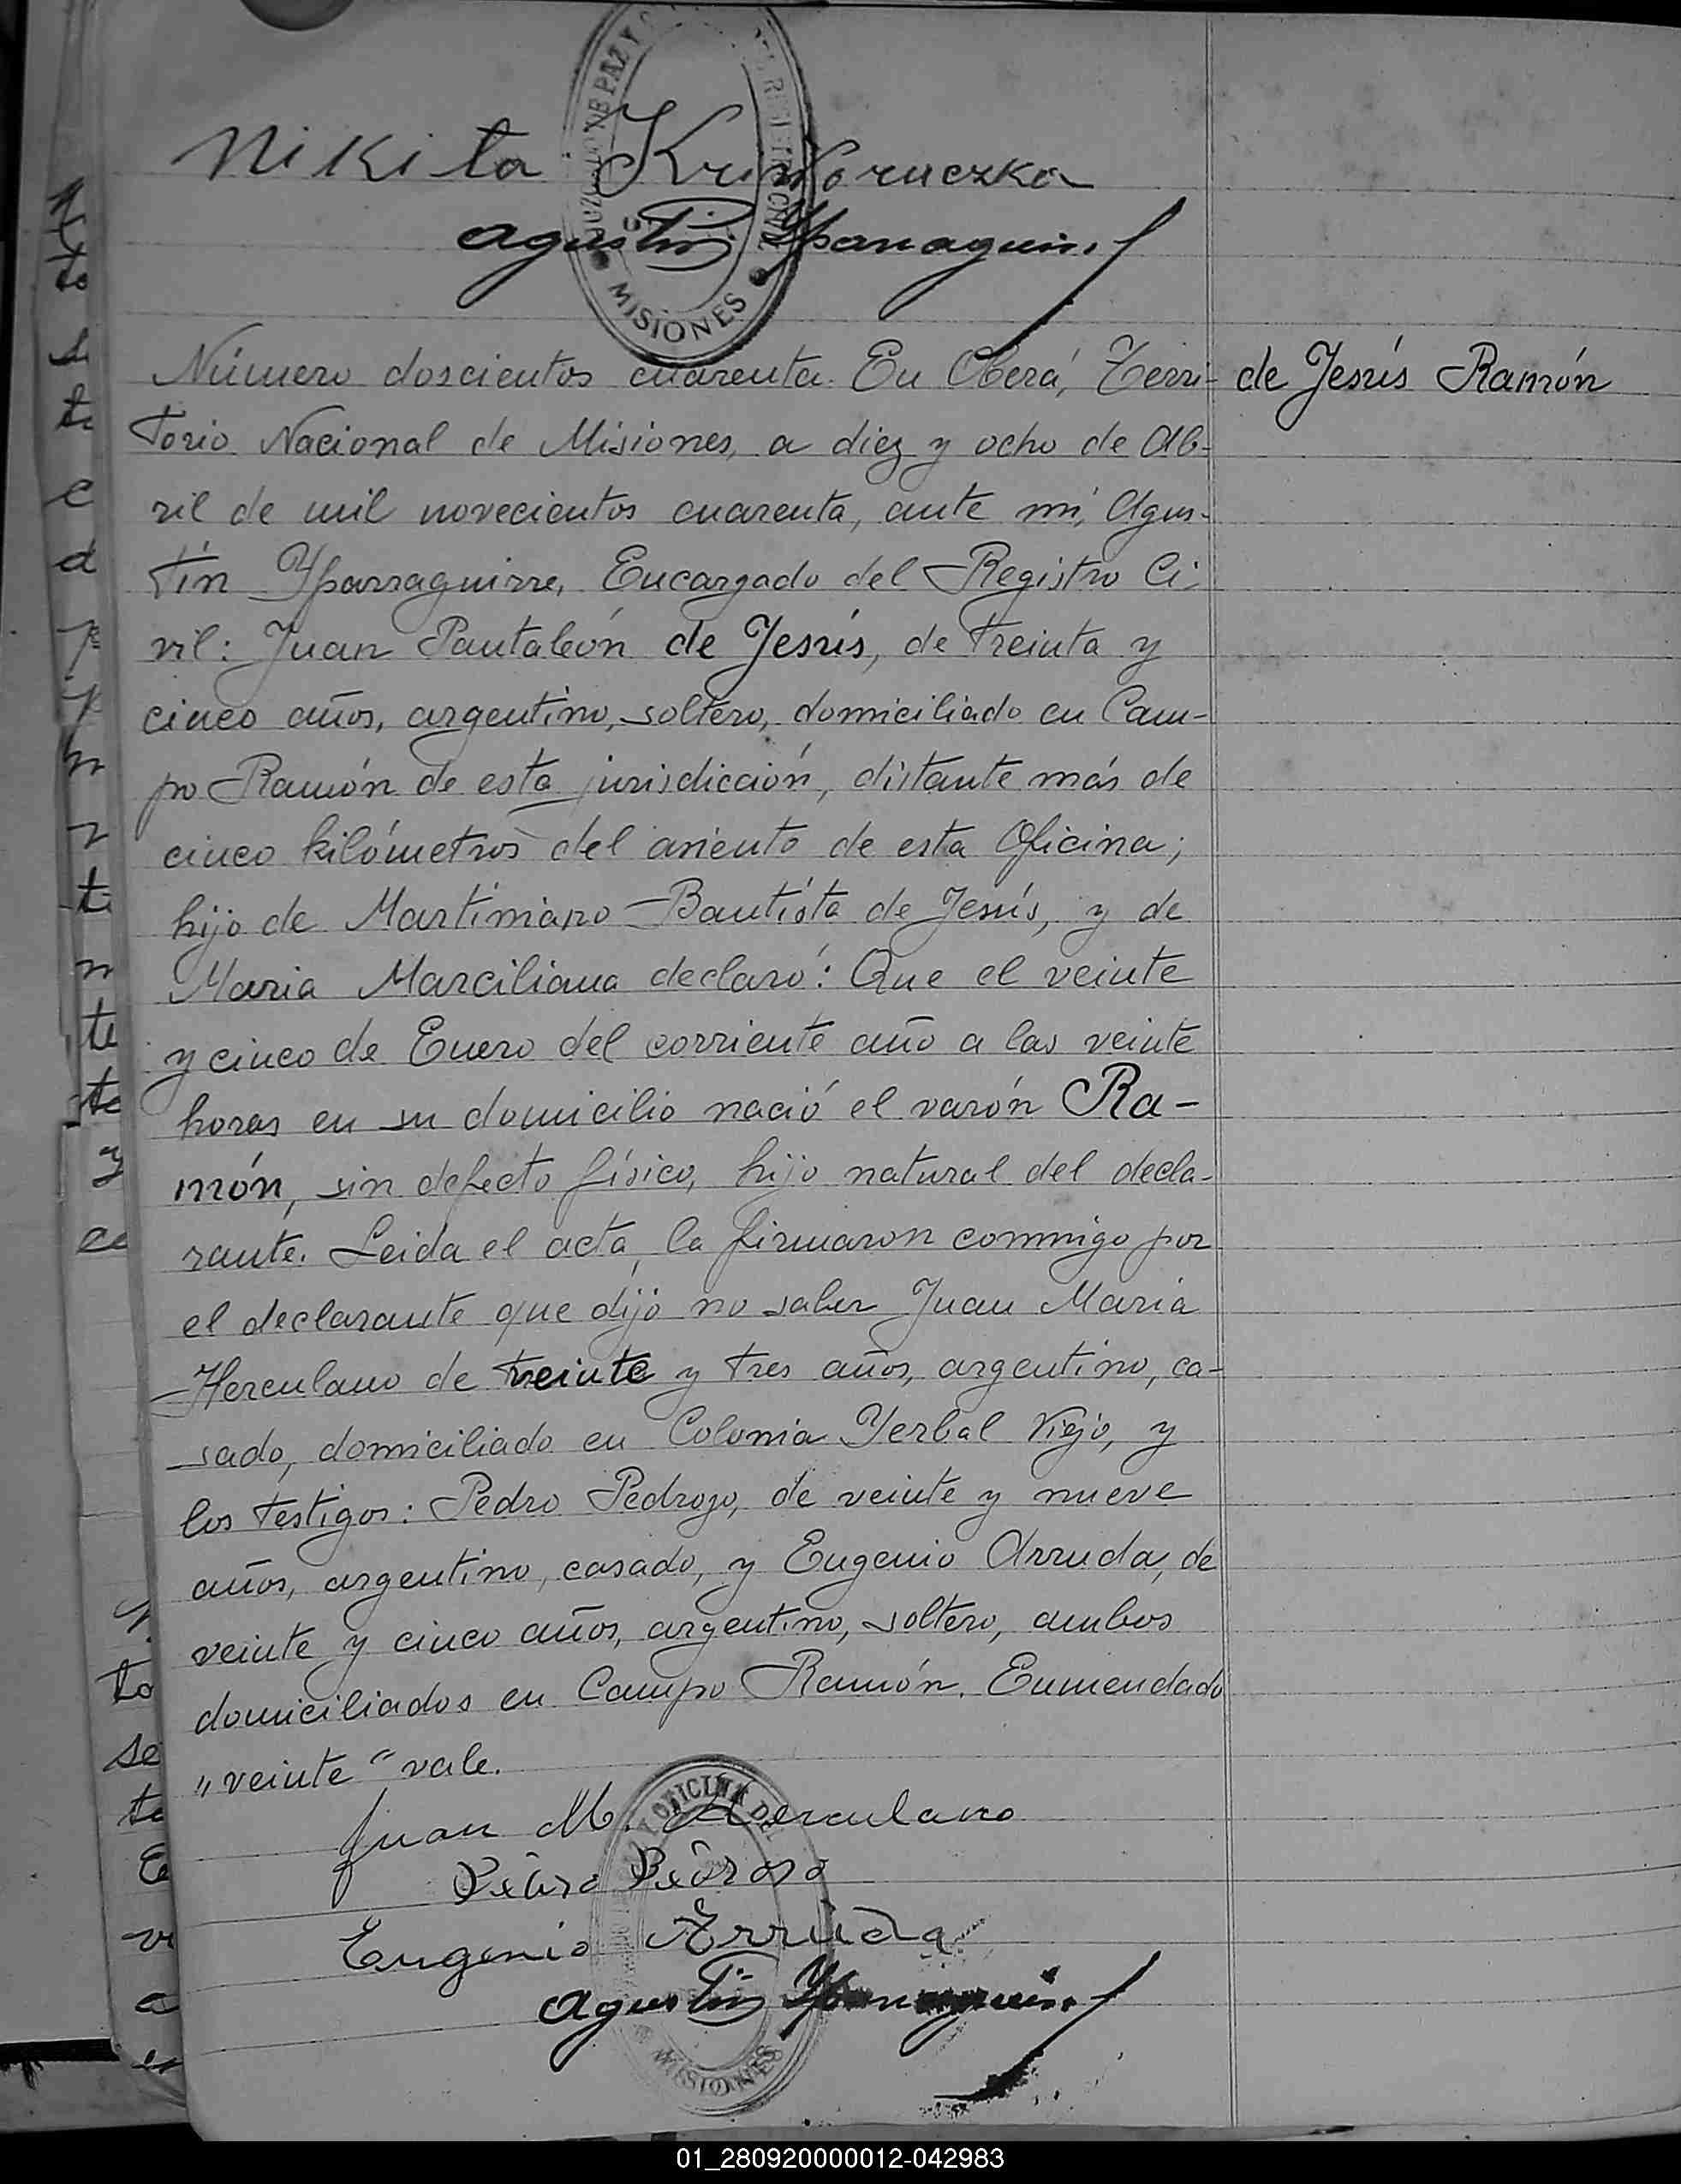 JUZGADO DE PAZ Y
MISIONES
Nikita Krivoruczka
Agustín Yparraguirre
Número doscientos cuarenta. En Oberá, Terri-
de Jesús Ramón
torio Nacional de Misiones, a diez y ocho de Ab-
ril de mil novecientos cuarenta, ante mí, Agus-
tín Yparraguirre, Encargado del Registro Ci-
vil: Juan Pantaleón de Jesús, de treinta y
cinco años, argentino, soltero, domiciliado en Cam-
po Ramón de esta jurisdicción, distante más de
cinco kilómetros del asiento de esta Oficina;
hijo de Martimiano Bautista de Jesús, y de
Maria Marciliana declaró: Que el veinte
y cinco de Enero del corriente año a las veinte
horas en su domicilio nació el varón Ra-
món, sin defecto físico, hijo natural del decla-
rante. Leida el acta, la firmaron conmigo por
el declarante que dijo no saber Juan Maria
Herculano de veinte y tres años, argentino, ca-
sado, domiciliado en Colonia Yerbal Viejo, y
los testigos: Pedro Pedrozo, de veinte y nueve
años, argentino, casado, y Eugenio Arruda, de
veinte y cinco años, argentino, soltero, ambos
domiciliados en Campo Ramón. Enmendado
"veinte" vale.
Juan M. Herculano
Pedro Pedroso
Eugenio Arruda
Agustín Yparraguirre
MISIONES
01_280920000012-042983